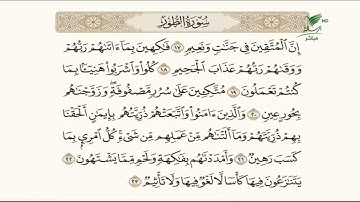 سُورَةُ الطُّورِ
HD
مباشر
إِنَّ الْمُتَّقِينَ فِي جَنَّاتٍ وَنَعِيمٍ ١٧ فَاكِهِينَ بِمَا آتَاهُمْ رَبُّهُمْ
وَوَقَاهُمْ رَبُّهُمْ عَذَابَ الْجَحِيمِ ١٨ كُلُوا وَاشْرَبُوا هَنِيئًا بِمَا
كُنتُمْ تَعْمَلُونَ ١٩ مُتَّكِئِينَ عَلَىٰ سُرُرٍ مَّصْفُوفَةٍ وَزَوَّجْنَاهُم
بِحُورٍ عِينٍ ٢٠ وَالَّذِينَ آمَنُوا وَاتَّبَعَتْهُمْ ذُرِّيَّتُهُم بِإِيمَانٍ أَلْحَقْنَا
بِهِمْ ذُرِّيَّتَهُمْ وَمَا أَلَتْنَاهُم مِّنْ عَمَلِهِم مِّن شَيْءٍ كُلُّ امْرِئٍ بِمَا
كَسَبَ رَهِينٌ ٢١ وَأَمْدَدْنَاهُم بِفَاكِهَةٍ وَلَحْمٍ مِّمَّا يَشْتَهُونَ ٢٢
يَتَنَازَعُونَ فِيهَا كَأْسًا لَّا لَغْوٌ فِيهَا وَلَا تَأْثِيمٌ ٢٣